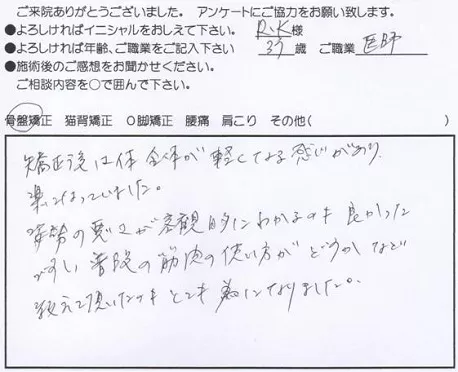 ご来院ありがとうございました。 アンケートにご協力をお願い致します。
●よろしければイニシャルをおしえて下さい。 R.K様
●よろしければ年齢、ご職業をご記入下さい 37歳 ご職業 医師
●施術後のご感想をお聞かせください。
ご相談内容を○で囲んで下さい。
骨盤矯正 猫背矯正 O脚矯正 腰痛 肩こり その他( )
矯正後は体全体が軽くなる感じがあり、
楽になっていました。
姿勢の悪さが客観的にわかるのも良かった
ですし、普段の筋肉の使い方がどうかなど
教えて頂いたのもとても為になりました。